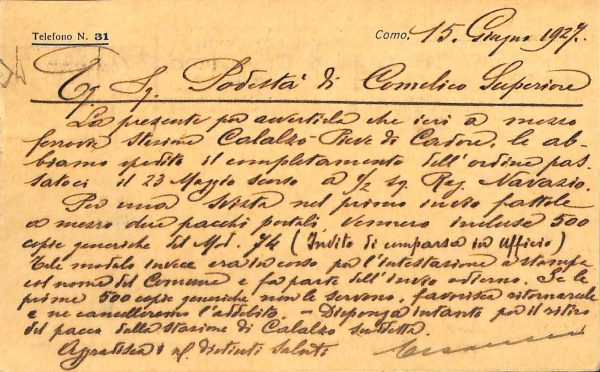 Telefono N. 31
Como, 15. Giugno 1927.
Eg. Sg. Podestà di Comelico Superiore
La presente per avvertirla che ieri a mezzo
ferrovia stazione Calalzo-Pieve di Cadore, le ab-
biamo spedito il completamento dell'ordine pas-
satoci il 23 Maggio scorso a 1/2 Sg. Rag. Navazio.
Per una svista nel primo invio fattole
a mezzo due pacchi postali, vennero incluse 500
copie generiche del Mod. 74 (Invito di comparsa in Ufficio)
Tale modulo invece era in corso per l'intestazione a stampa
col nome del Comune e fa parte dell'invio odierno. Se le
prime 500 copie generiche non le servono, favorisca ritornarcele
e ne cancelleremo l'addebito. - Disponga intanto per il ritiro
del pacco dalla stazione di Calalzo suddetta.
Aggradisca i ns. distinti saluti